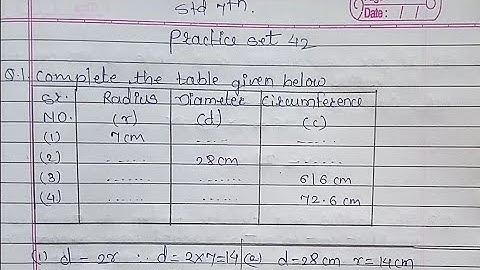 Date: / /
Std 7th.
Practice set 42
Q.1. complete the table given below
Sr. NO. Radius (r) Diameter (d) Circumference (c)
(1) 7cm ...... ......
(2) ...... 28cm ......
(3) ...... ...... 616 cm
(4) ...... ...... 72.6 cm
(1) d = 2r ∴ d = 2×7=14 (2) d=28cm r=14cm